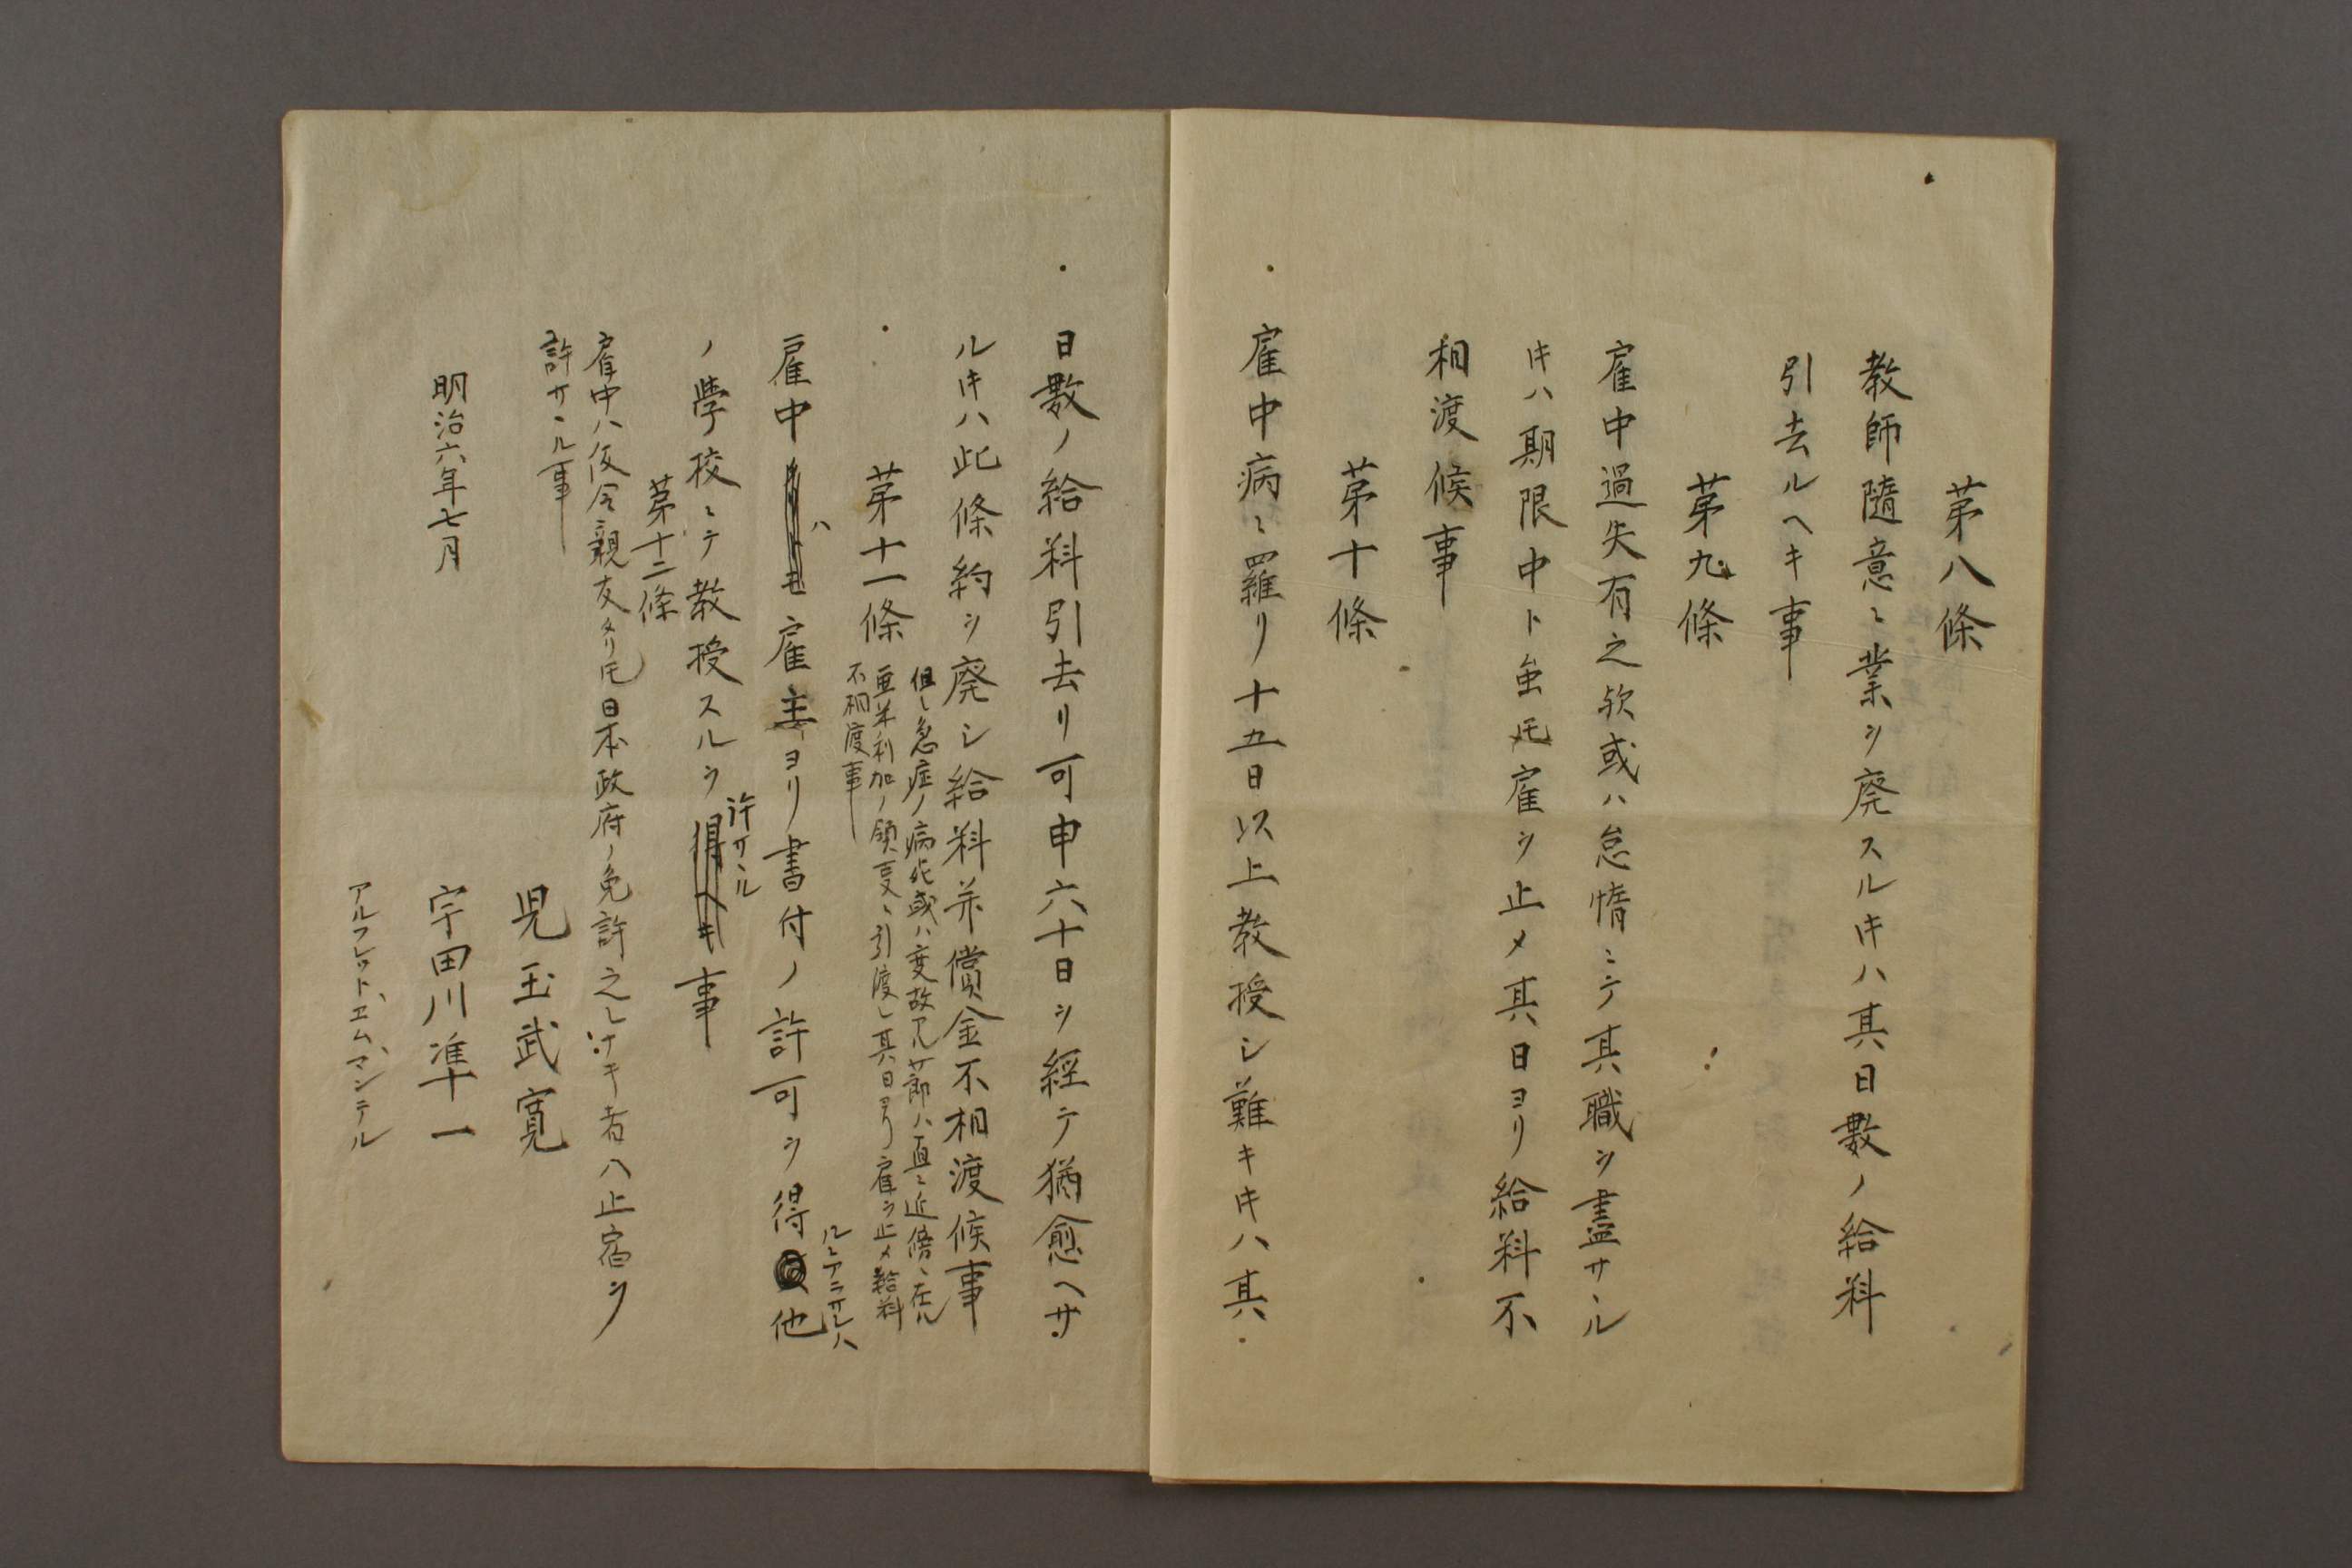 第八條
教師隨意ニ業ヲ廃スル𪜈ハ其日數ノ給料
引去ルヘキ事
第九條
雇中過失有之欤或ハ怠惰ニテ其職ヲ盡サヽル
キハ期限中ト虽𪜈雇ヲ止メ其日ヨリ給料不
相渡候事
第十條
雇中病ニ羅リ十五日以上教授シ難キキハ其
日數ノ給料引去リ可申六十日ヲ経テ猶愈ヘサ
ルキハ此條約ヲ廃シ給料并償金不相渡候事
但し急症ノ病死或ハ変故アル節ハ直ニ近傍ニ在ル
亜米利加ノ領事ニ引渡し其日ヨリ雇ヲ止メ給料
不相渡事
第十一條
雇中ハ雇主ヨリ書付ノ許可ヲ得ルニアラサレハ他
ノ學校ニテ教授スルヲ許サヽル事
第十二條
雇中ハ仮令親友タリ𪜈日本政府ノ免許之レナキ者ハ止宿ヲ
許サヽル事
明治六年七月
児玉武寛
宇田川準一
アルフレット、エム、マンテル